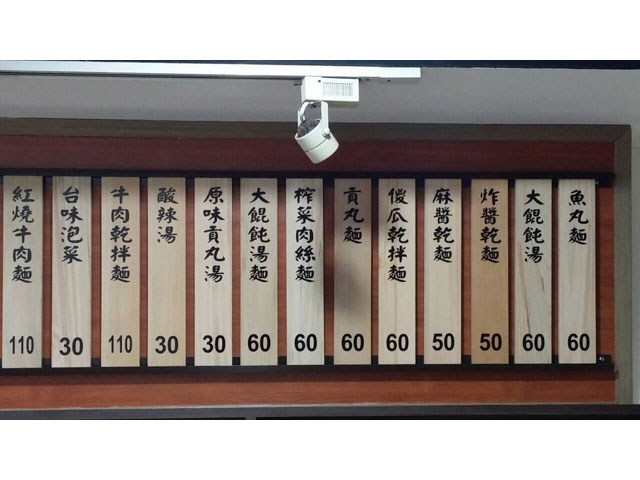 魚丸麵 60
大餛飩湯 60
炸醬乾麵 50
麻醬乾麵 50
傻瓜乾拌麵 60
貢丸麵 60
榨菜肉絲麵 60
大餛飩湯麵 60
原味貢丸湯 30
酸辣湯 30
牛肉乾拌麵 110
台味泡菜 30
紅燒牛肉麵 110